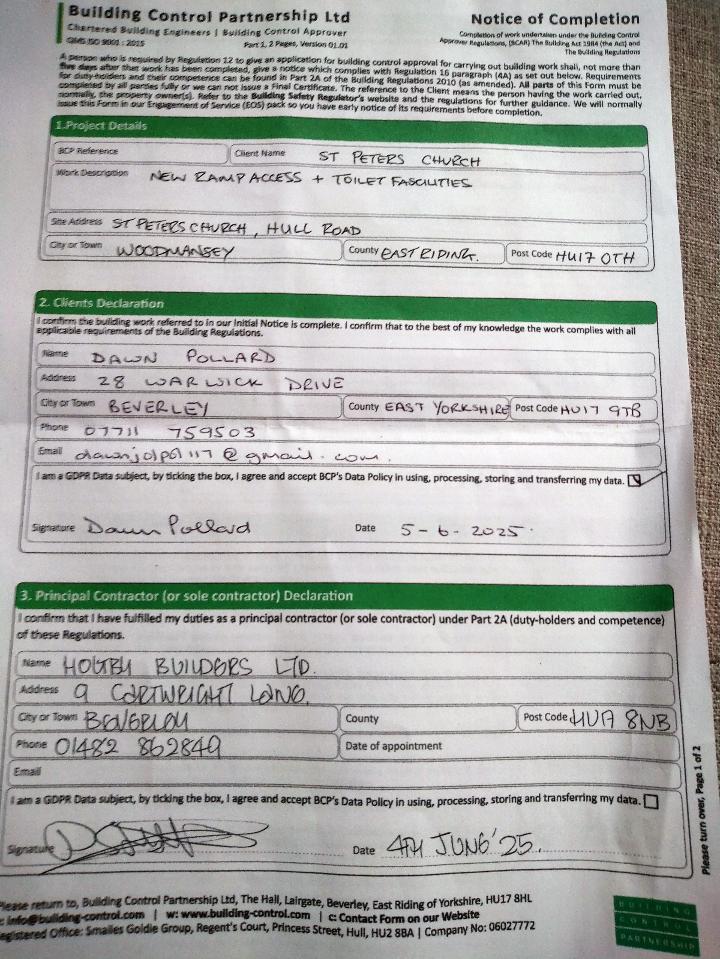 Building Control Partnership Ltd
Chartered Building Engineers | Building Control Approver
QMS ISO 9001 : 2015
Part 1, 2 Pages, Version 01.01
Notice of Completion
Completion of work undertaken under the Building Control
Approver Regulations, (BCAR) The Building Act 1984 (the Act) and
The Building Regulations
A person who is required by Regulation 12 to give an application for building control approval for carrying out building work shall, not more than
five days after that work has been completed, give a notice which complies with Regulation 16 paragraph (4A) as set out below. Requirements
for duty-holders and their competence can be found in Part 2A of the Building Regulations 2010 (as amended). All parts of this Form must be
completed by all parties fully or we can not issue a Final Certificate. The reference to the Client means the person having the work carried out,
normally, the property owner(s). Refer to the Building Safety Regulator's website and the regulations for further guidance. We will normally
issue this Form in our Engagement of Service (EOS) pack so you have early notice of its requirements before completion.
1.Project Details
BCP Reference
Client Name ST PETERS CHURCH
Work Description NEW RAMP ACCESS + TOILET FASCILITIES
Site Address ST PETERS CHURCH, HULL ROAD
City or Town WOODMANSEY County EAST RIDING. Post Code HU17 0TH
2. Clients Declaration
I confirm the building work referred to in our Initial Notice is complete. I confirm that to the best of my knowledge the work complies with all
applicable requirements of the Building Regulations.
Name DAWN POLLARD
Address 28 WARWICK DRIVE
City or Town BEVERLEY County EAST YORKSHIRE Post Code HU17 9TB
Phone 07711 759503
Email
I am a GDPR Data subject, by ticking the box, I agree and accept BCP's Data Policy in using, processing, storing and transferring my data.
Signature Dawn Pollard Date 5-6-2025
3. Principal Contractor (or sole contractor) Declaration
I confirm that I have fulfilled my duties as a principal contractor (or sole contractor) under Part 2A (duty-holders and competence)
of these Regulations.
Name BUILDERS LTD.
Address 9 CARTWRIGHT LANE.
City or Town BEVERLEY County Post Code 8NB
Phone 01482 862849 Date of appointment
Email
I am a GDPR Data subject, by ticking the box, I agree and accept BCP's Data Policy in using, processing, storing and transferring my data.
Signature Date 4TH JUNE '25.
Please turn over, Page 1 of 2
Please return to, Building Control Partnership Ltd, The Hall, Lairgate, Beverley, East Riding of Yorkshire, HU17 8HL
e: info@building-control.com | w: www.building-control.com | c: Contact Form on our Website
egistered Office: Smailes Goldie Group, Regent's Court, Princess Street, Hull, HU2 8BA | Company No: 06027772
BUILDING
CONTROL
PARTNERSHIP